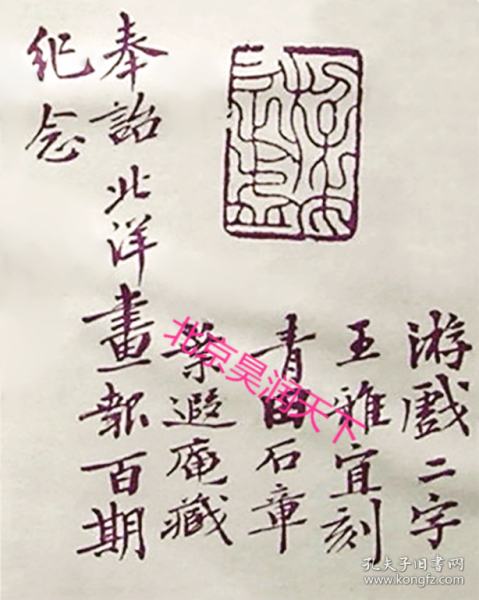 游戲二字
王雅宜刻
青田石章
葉遐庵藏
奉詒北洋畫報百期
紀念
北京昊润天下
孔夫子旧书网
www.kongfz.com